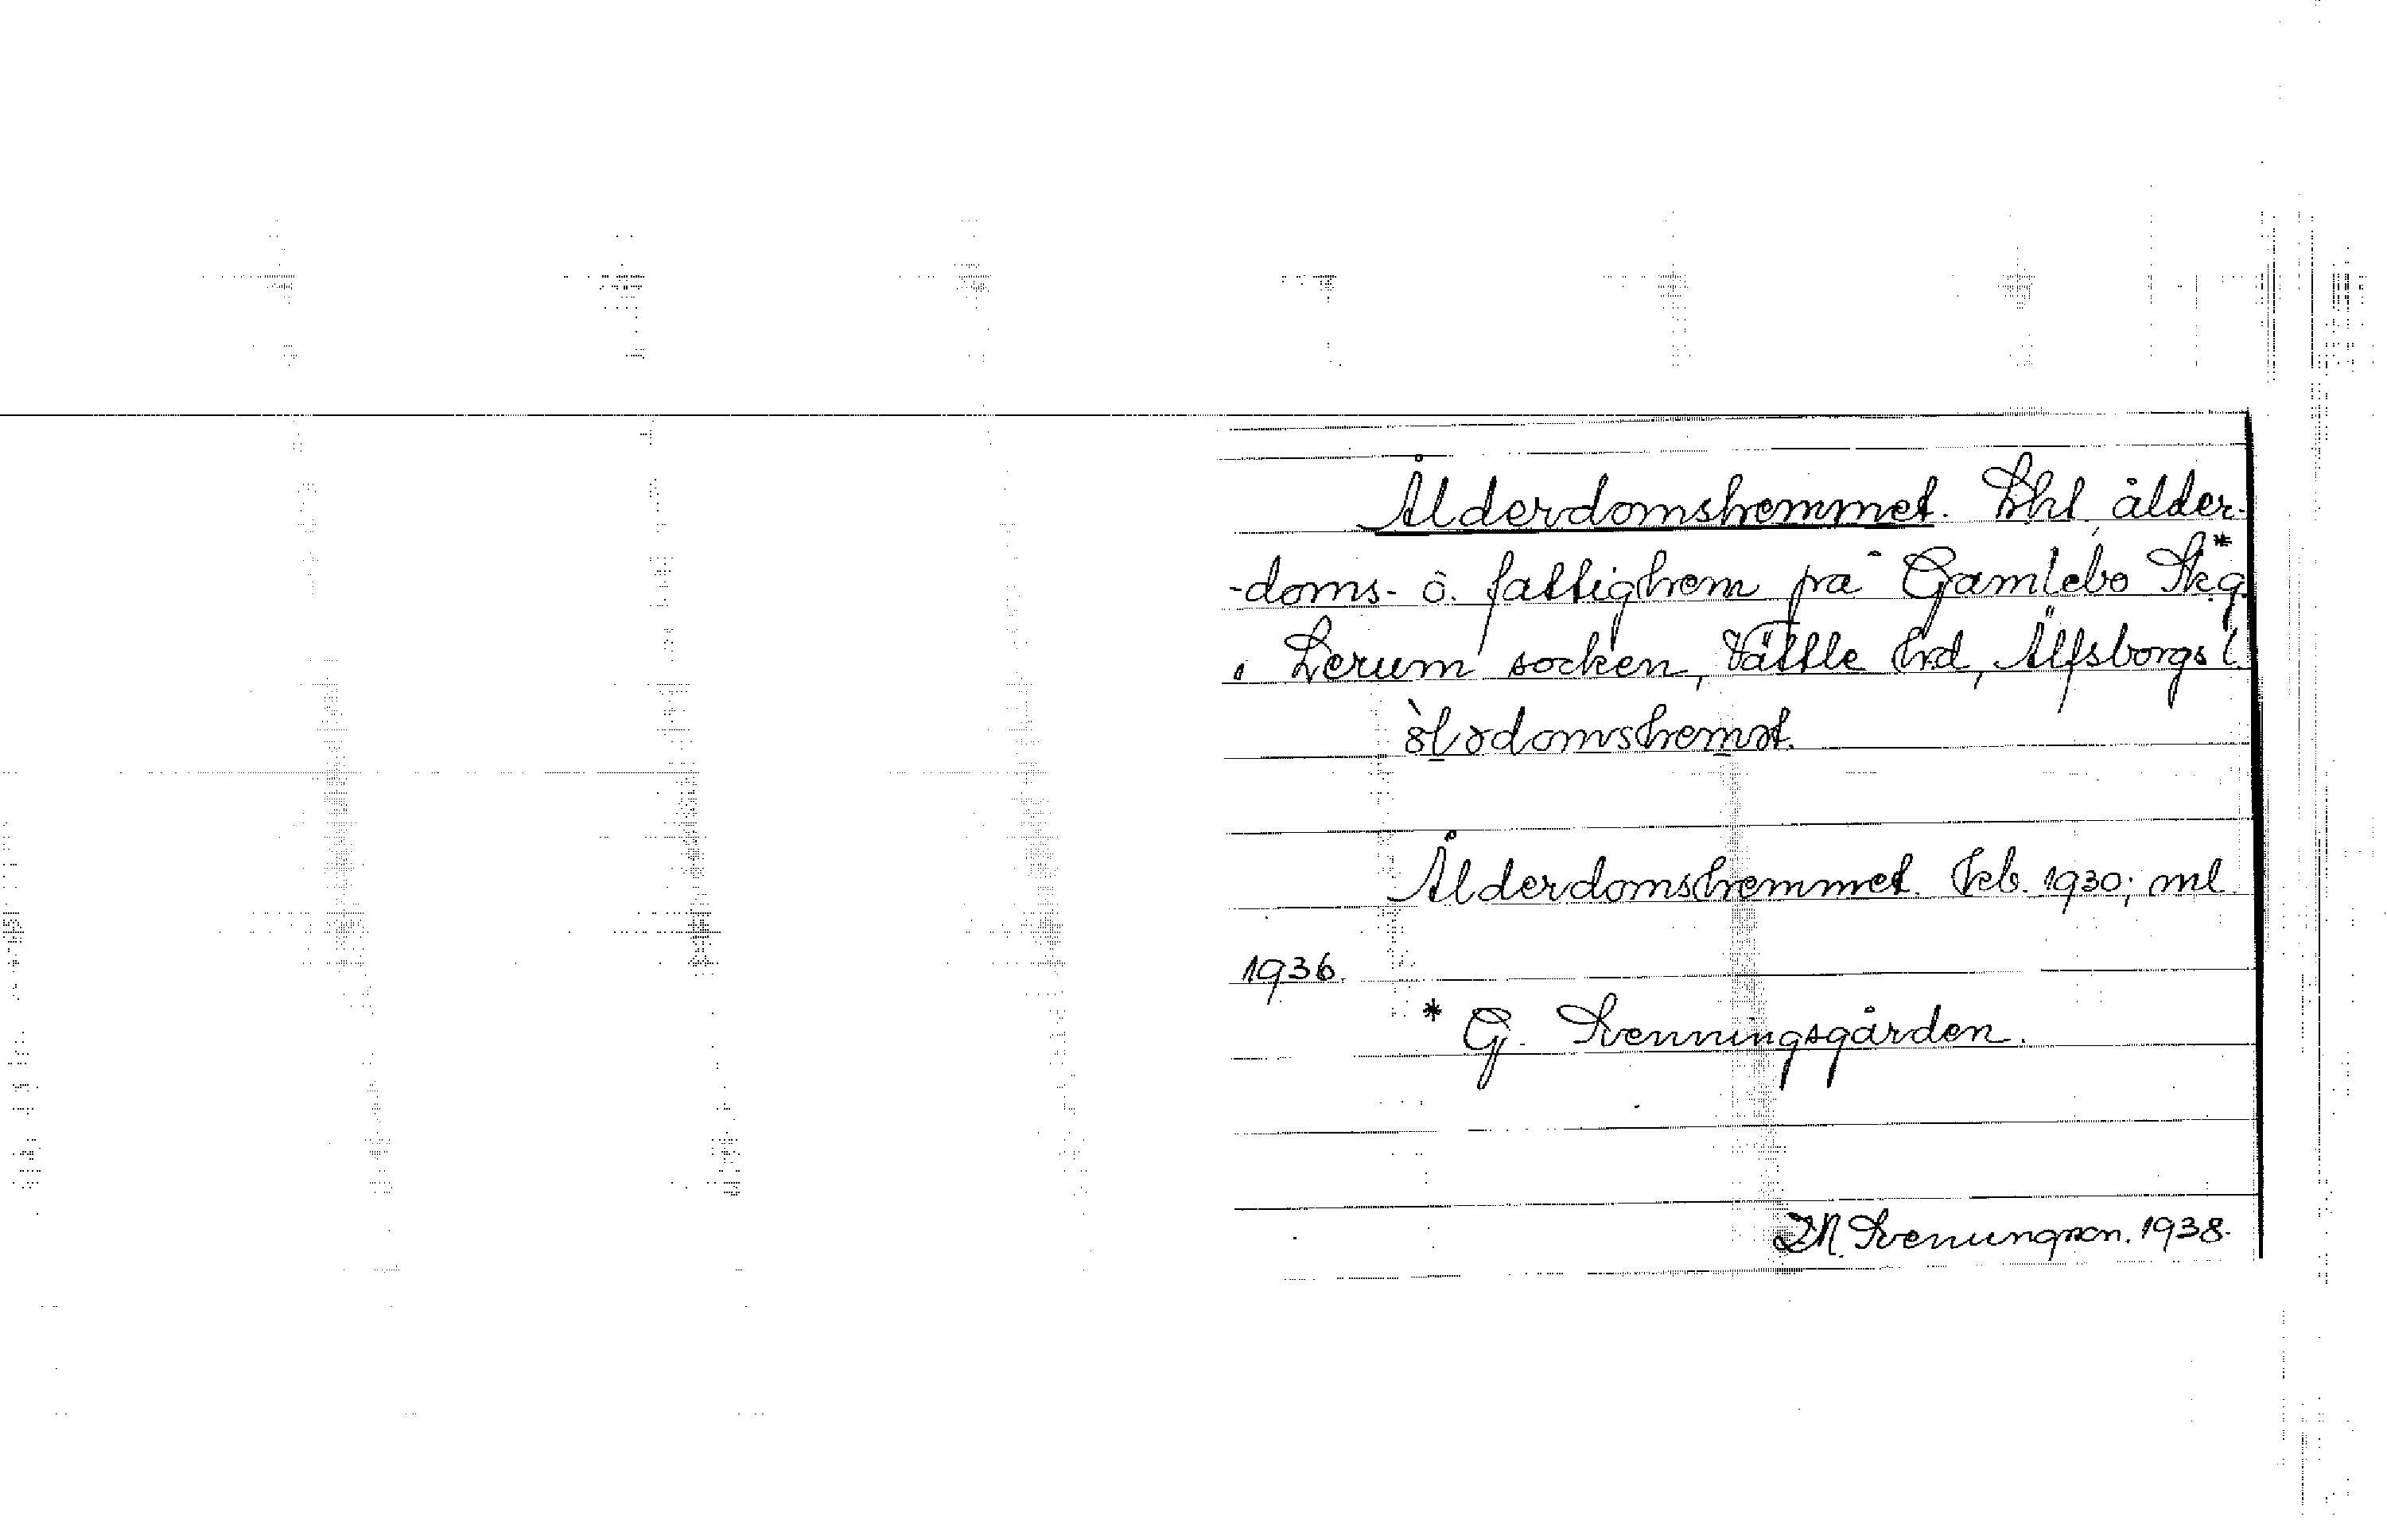 Ålderdomshemmet. Lht, ålder-
-doms- o. fattighem på Gamlebo Skg.*
i Lerum socken, Vättle hd, Älfsborgs l.
òldomshemət.
Ålderdomshemmet. Feb. 1930; ml
1936.
* G. Svenningsgården.
D.N. Svenungson. 1938.